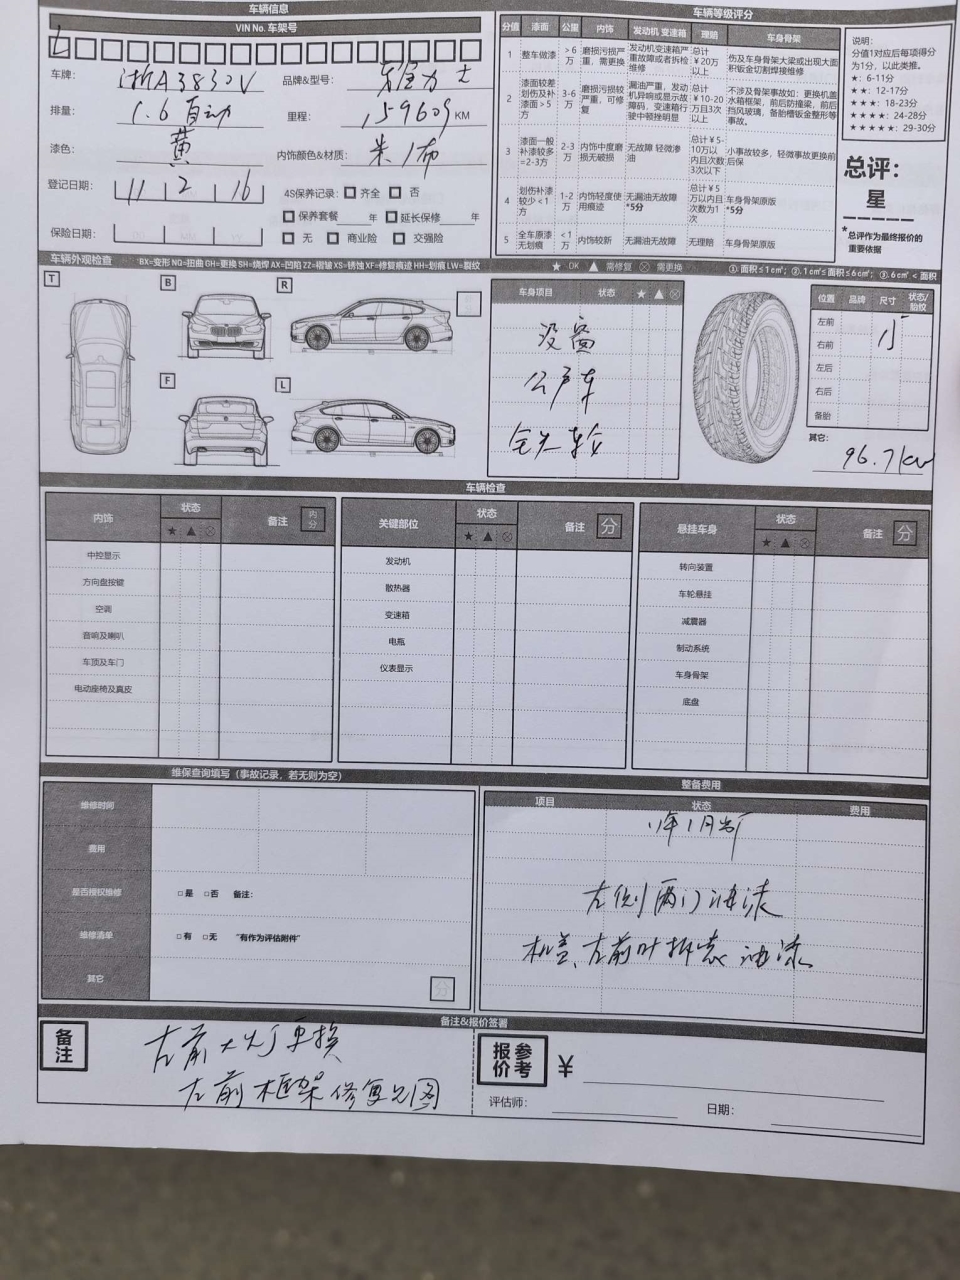 车辆信息
VIN No. 车架号
L
车牌: 浙A3830V 品牌&型号:
排量: 1.6自动 里程: 159609 KM
漆色: 黄 内饰颜色&材质: 米/布
登记日期: 11 2 16 4S保养记录: 齐全 否
保养套餐 年 延长保修 年
保险日期: 无 商业险 交强险
车辆等级评分
分值 漆面 公里 内饰 发动机 变速箱 理赔 车身骨架
1 整车做漆 >6万 磨损污损严重,需更换 发动机变速箱严重故障或者拆检维修 总计¥20万以上 伤及车身骨架大梁或出现大面积钣金切割焊接维修
2 漆面较差划伤及补漆面>5方 3-6万 磨损污损较严重,可修复 漏油严重,发动机异响或显示故障码,变速箱行驶中顿挫明显 总计¥10-20万且3次以上 不涉及骨架事故如:更换机盖水箱框架,前后防撞梁,前后挡风玻璃,备胎槽钣金整形等事故。
3 漆面一般补漆较多=2-3方 2-3万 内饰中度磨损无破损 无故障 轻微渗油 总计¥5-10万以内且次数3次以下 小事故较多,轻微事故更换前后保
4 划伤补漆较少<1方 1-2万 内饰轻度使用痕迹 无漏油无故障*5分 总计¥5万以内且次数为1次 车身骨架原版*5分
5 全车原漆无划痕 <1万 内饰较新 无漏油无故障 无理赔 车身骨架原版
说明:
分值1对应后每项得分为1分,以此类推。
★: 6-11分
★★: 12-17分
★★★: 18-23分
★★★★: 24-28分
★★★★★: 29-30分
总评:
星
*总评作为最终报价的重要依据
车辆外观检查 *BX=变形 NQ=扭曲 GH=更换 SH=烧焊 AX=凹陷 ZZ=褶皱 XS=锈蚀 XF=修复痕迹 HH=划痕 LW=裂纹 ★ OK ▲ 需修复 ⊗ 需更换 ①. 面积≤1㎡; ②. 1㎡≤面积≤6㎡; ③. 6㎡<面积
T B R
F L
车身项目 状态 ★ ▲ ⊗
没窗
公户车
位置 品牌 尺寸 状态/胎纹
左前
右前
左后
右后
备胎
其它: 96.7kw
车辆检查
内饰 状态 ★ ▲ ⊗ 备注 内分
中控显示
方向盘按键
空调
音响及喇叭
车顶及车门
电动座椅及真皮
关键部位 状态 ★ ▲ ⊗ 备注 分
发动机
散热器
变速箱
电瓶
仪表显示
悬挂车身 状态 ★ ▲ ⊗ 备注 分
转向装置
车轮悬挂
减震器
制动系统
车身骨架
底盘
维保查询填写(事故记录,若无则为空)
维修时间
费用
是否授权维修 □是 □否 备注:
维修清单 □有 □无 "有作为评估附件"
其它 分
整备费用
项目 状态 费用
11年1月出厂
左侧两门油漆
机盖、左前叶拆装油漆
备注&报价签署
备注
左前大灯更换
左前框架修复见图
参考报价 ¥
评估师: 日期: